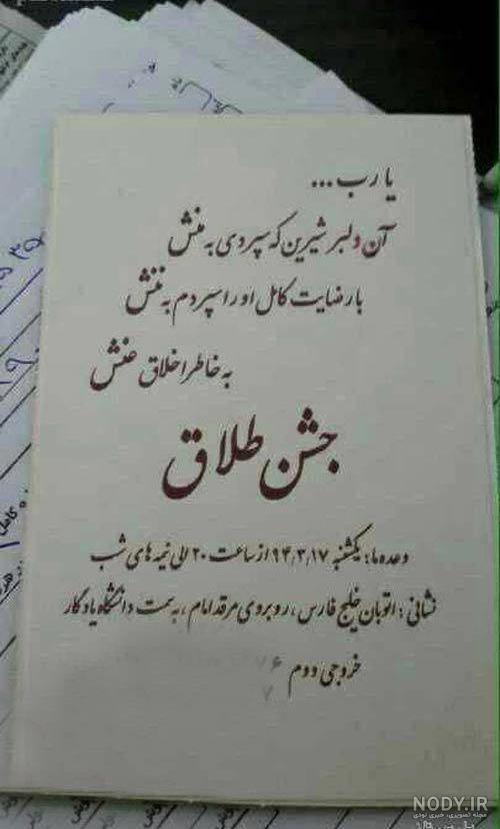 یا رب ...
آن دلبر شیرین که سپردی به منش
با رضایت کامل او را سپردم به ننش
به خاطر اخلاق عنش
جشن طلاق
وعده ما: یکشنبه ۹۴,۳,۱۷ از ساعت ۲۰ الی نیمه های شب
نشانی: اتوبان خلیج فارس، روبروی مرقد امام، به سمت دانشگاه یادگار
خروجی دوم
NODY.IR
مجله تصویری، خبری نودی